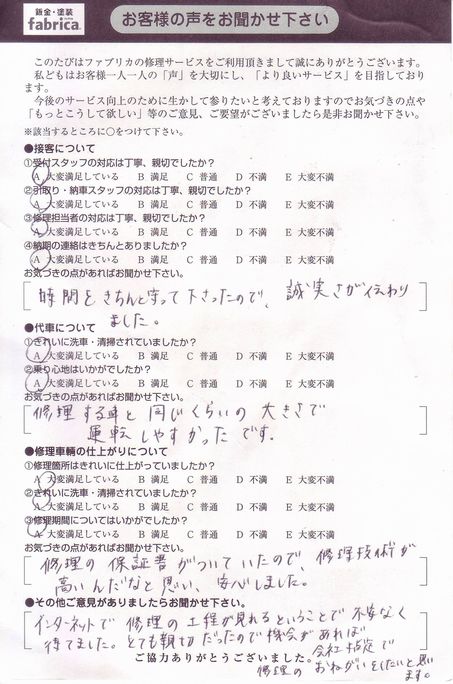 鈑金・塗装
fabrica.
お客様の声をお聞かせ下さい
このたびはファブリカの修理サービスをご利用頂きまして誠にありがとうございます。
私どもはお客様一人一人の「声」を大切にし、「より良いサービス」を目指しており
ます。
今後のサービス向上のために生かして参りたいと考えておりますのでお気づきの点や
「もっとこうして欲しい」等のご意見、ご要望がございましたら是非お聞かせ下さい。
※該当するところに○をつけて下さい。
●接客について
①受付スタッフの対応は丁寧、親切でしたか?
A 大変満足している B 満足 C 普通 D 不満 E 大変不満
②引取り・納車スタッフの対応は丁寧、親切でしたか?
A 大変満足している B 満足 C 普通 D 不満 E 大変不満
③修理担当者の対応は丁寧、親切でしたか?
A 大変満足している B 満足 C 普通 D 不満 E 大変不満
④納期の連絡はきちんとありましたか?
A 大変満足している B 満足 C 普通 D 不満 E 大変不満
お気づきの点があればお聞かせ下さい。
時間をきちんと守って下さったので、誠実さが伝わり
ました。
●代車について
①きれいに洗車・清掃されていましたか?
A 大変満足している B 満足 C 普通 D 不満 E 大変不満
②乗り心地はいかがでしたか?
A 大変満足している B 満足 C 普通 D 不満 E 大変不満
お気づきの点があればお聞かせ下さい。
修理する車と同じくらいの大きさで
運転しやすかったです。
●修理車輌の仕上がりについて
①修理箇所はきれいに仕上がっていましたか?
A 大変満足している B 満足 C 普通 D 不満 E 大変不満
②きれいに洗車・清掃されていましたか?
A 大変満足している B 満足 C 普通 D 不満 E 大変不満
③修理期間についてはいかがでしたか?
A 大変満足している B 満足 C 普通 D 不満 E 大変不満
お気づきの点があればお聞かせ下さい。
修理の保証書がついていたので、修理技術が
高いんだなと思い、安心しました。
●その他ご意見がありましたらお聞かせ下さい。
インターネットで修理の工程が見れるということで不安なく
待てました。とても親切だったので機会があれば
会社指定で
ご協力ありがとうございました。
修理のおねがいをしたいと思い
ます。